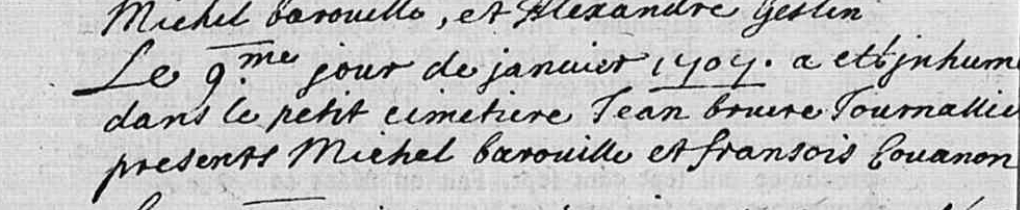 Michel barouille, et Alexandre Geslin
Le 9.me jour de janvier 1707. a etté jnhum
dans le petit cimetiere Jean bruere Journallie
presents Michel barouille et fransois Couanon